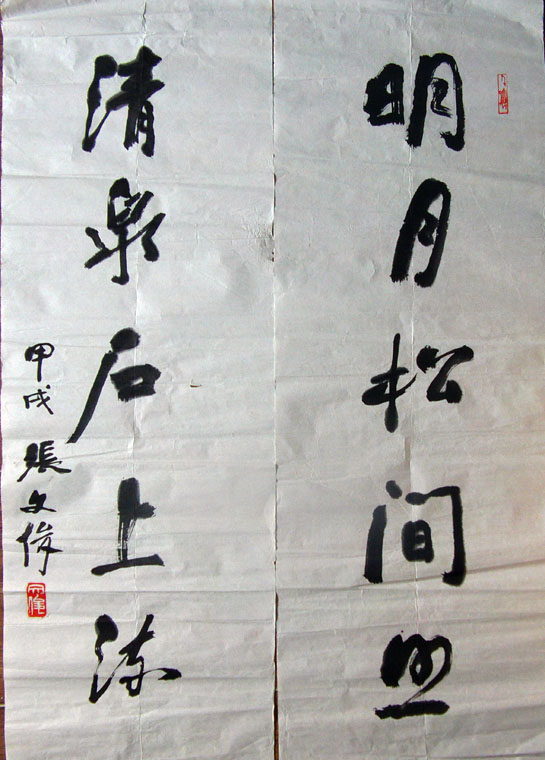 明月松间照
清泉石上流
甲戌 張文俊